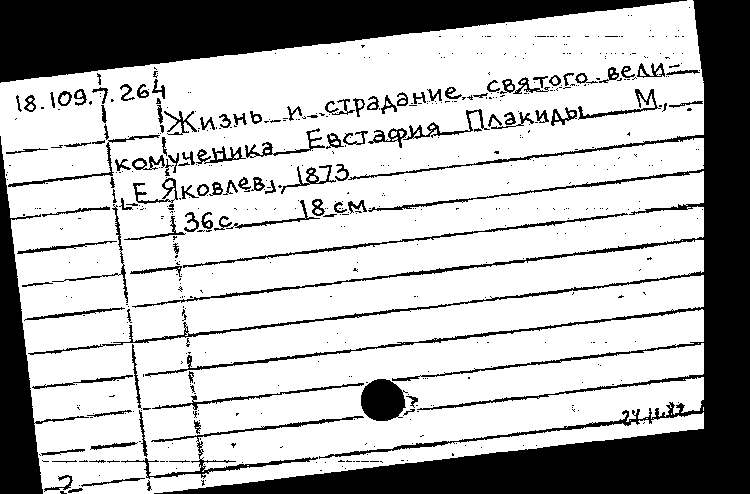 18.109.7.264
Жизнь и страдание святого вели-
комученика Евстафия Плакиды М.,
[Е Яковлев], 1873
36 с. 18 см
2